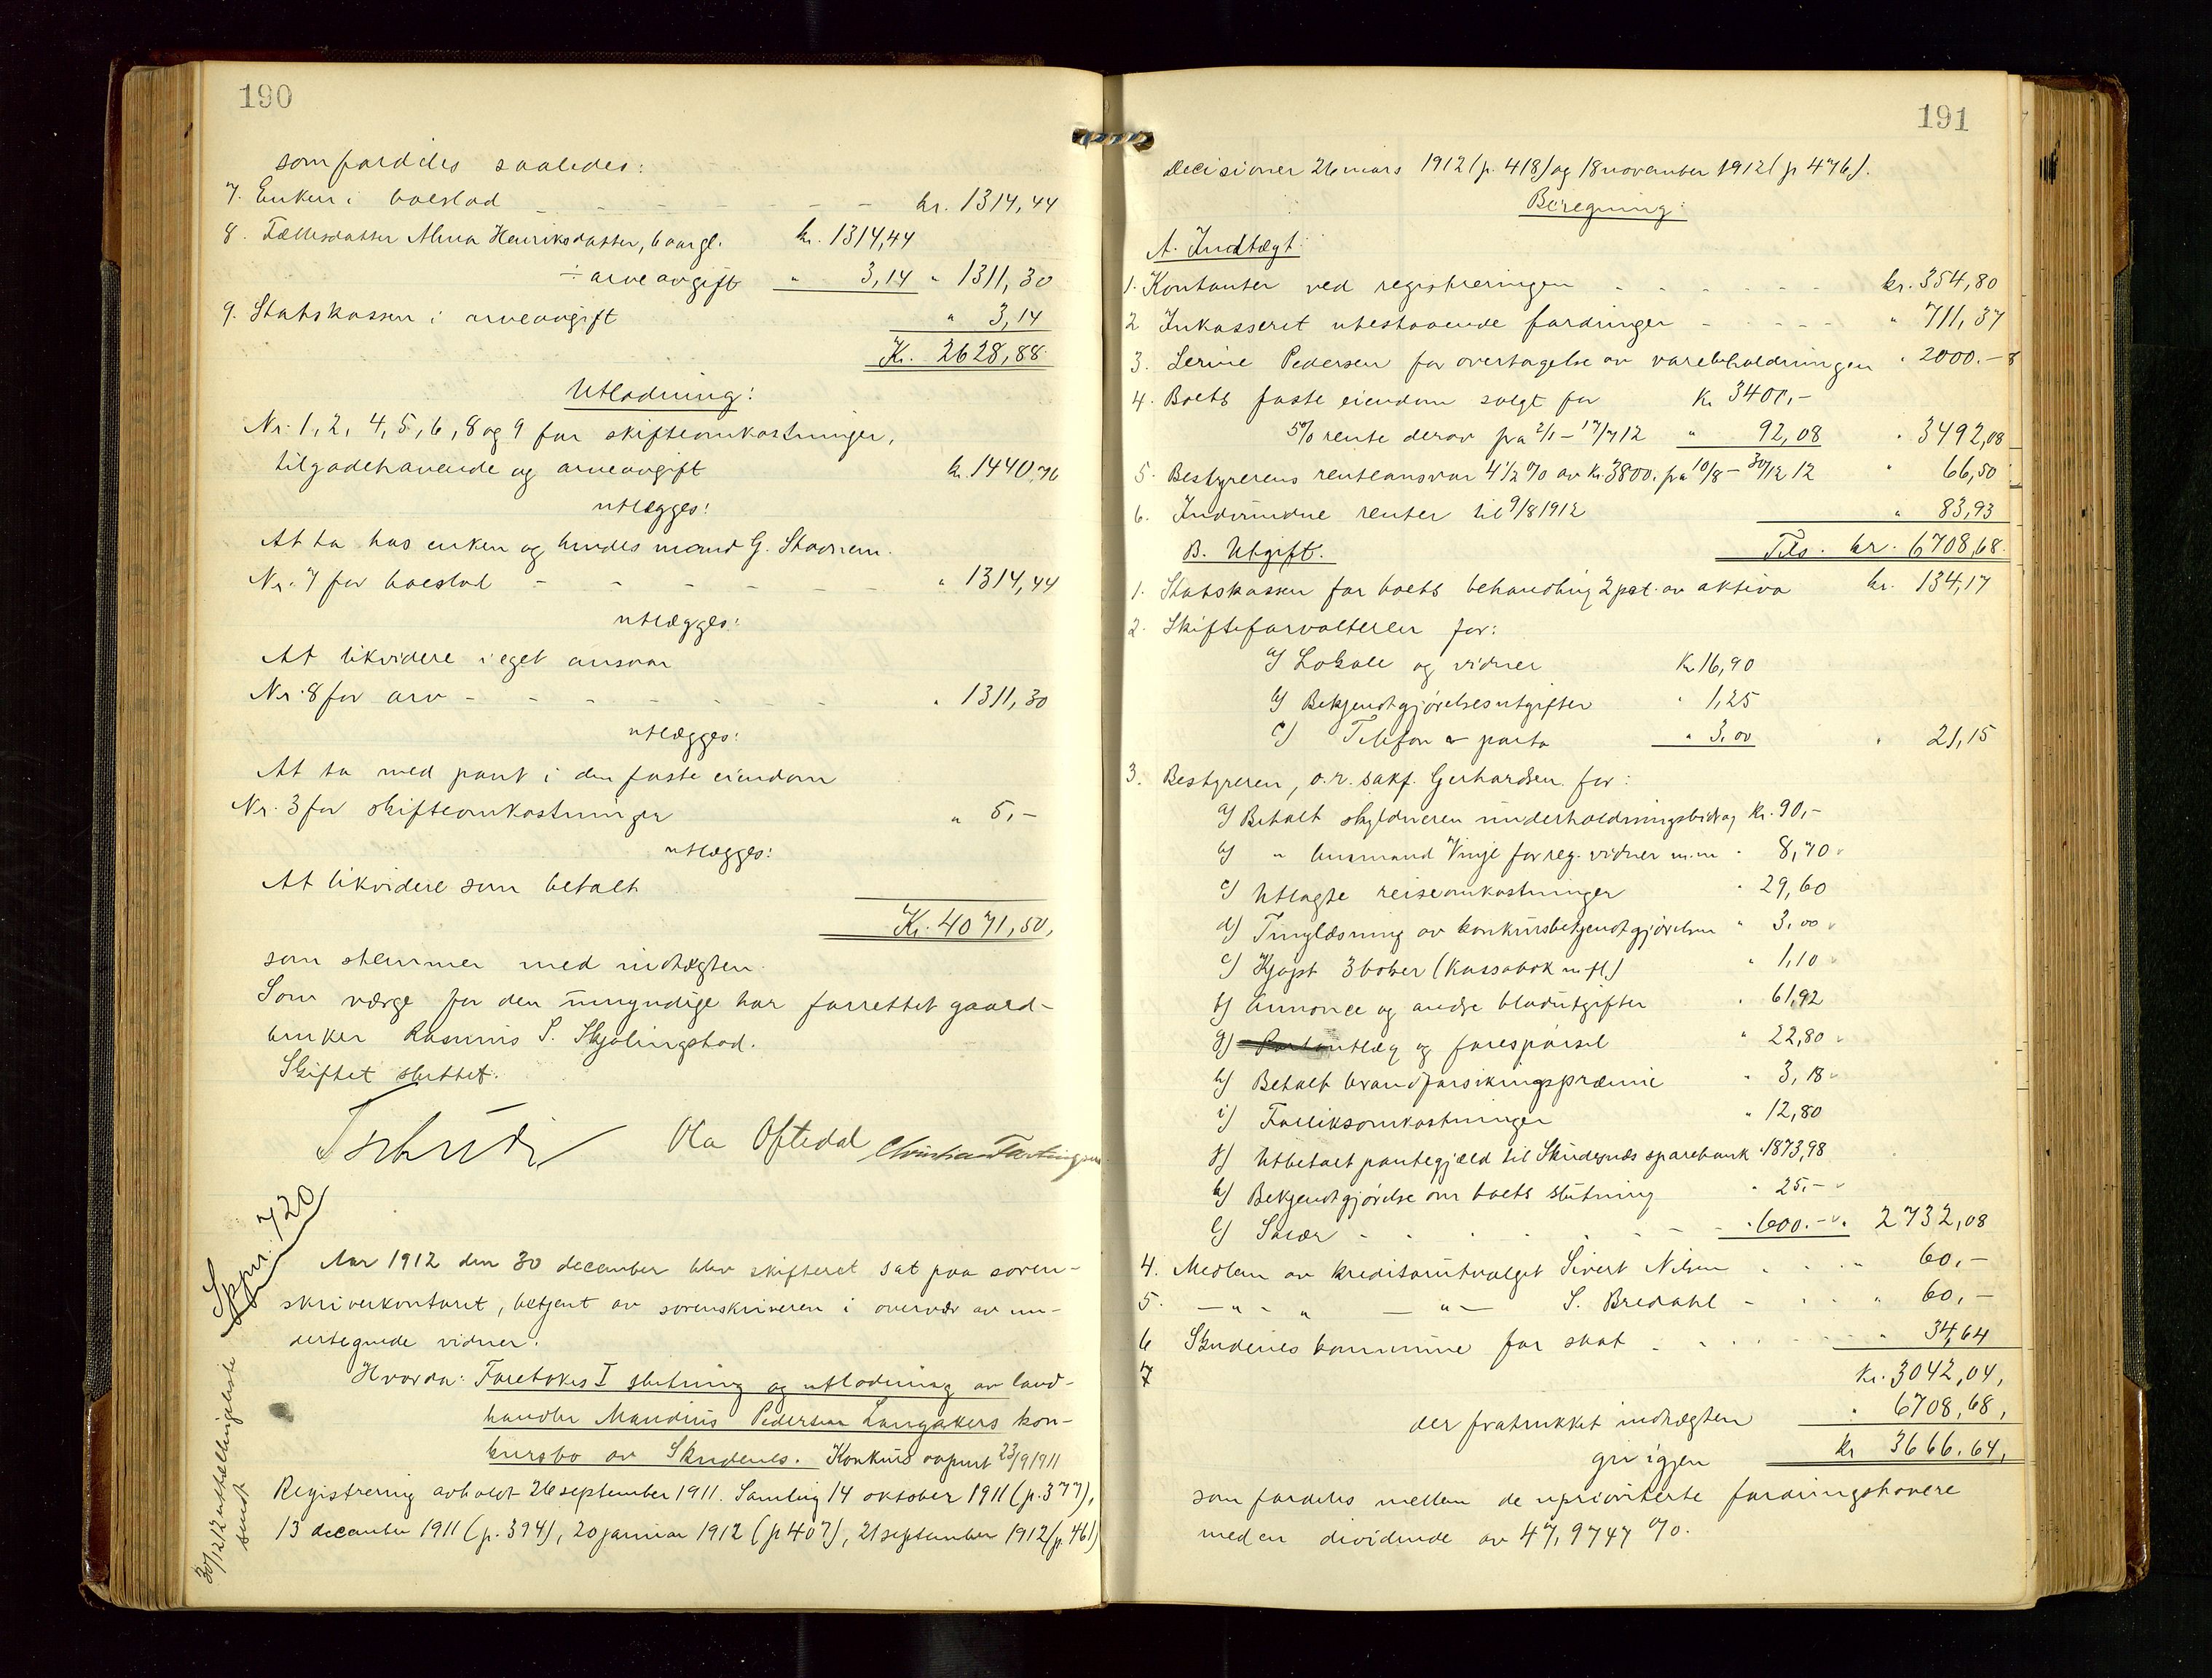 190
som fordeles saaledes:
7. Enken i boeslod - - - - - - kr. 1314,44
8. Fællesdatter Alma Henriksdatter, 6 aar gl. kr. 1314,44
÷ arveavgift " 3,14 " 1311,30
9. Statskassen i arveavgift " 3,14
Kr. 2628,88
Utlodning:
Nr. 1, 2, 4, 5, 6, 8 og 9 for skifteomkostninger,
tilgodehavende og arveavgift kr. 1440,76
utlægges:
At ta hos enken og hendes mand G. Stavnem.
Nr. 7 for boeslod - - - - - - " 1314,44
utlægges:
At likvidere i eget ansvar
Nr. 8 for arv - - - - - - " 1311,30
utlægges:
At ta med pant i den faste eiendom
Nr. 3 for skifteomkostninger " 5,-
utlægges:
At likvidere som betalt
Kr. 4071,50,
som stemmer med indtægten.
Som værge for den umyndige har forrettet gaard-
bruker Rasmus S. Skjølingstad.
Skiftet sluttet.
Ola Oftedal
Skpr. 720
Aar 1912 den 30 december blev skifteret sat paa soren-
skriverkontoret, betjent av sorenskriveren i overvær av un-
dertegnede vidner.
Hvorda: Foretokes I slutning og utlodning av land-
handler Mandius Pedersen Langakers kon-
kursbo av Skudenes. Konkurs aapnet 23/9 1911
Registrering avholdt 26 september 1911. Samling 14 oktober 1911 (p. 377),
13 december 1911 (p. 394), 20 januar 1912 (p 407), 21 september 1912 (p. 461)
30/12 12 utstellingsliste
sendt
191
decisioner 26 mars 1912 (p. 418) og 18 november 1912 (p 476).
Beregning:
A. Indtægt:
1. Kontanter ved registreringen - - - - - - kr. 354,80
2 Inkasseret utestaaende fordringer - - - - - " 711,37
3. Serine Pedersen for overtagelse av varebeholdningen " 2000.-
4. Boets faste eiendom solgt for Kr 3400,-
5% rente derav fra 2/1 - 17/7 12 " 92,08 " 3492,08
5. Bestyrerens renteansvar 4 1/2 % av kr. 3800. fra 10/8 - 30/12 12 " 66,50
6. Indvundne renter til 9/8 1912 " 83,93
Tils. kr. 6708,68.
B. Utgift.
1. Statskassen for boets behandling 2 pct. av aktiva kr. 134,17
2. Skifteforvalteren for:
a) Lokale og vidner Kr. 16,90
b) Bekjendtgjørelsesutgifter " 1,25
c) Telefon & porto " 3,00 " 21,15
3. Bestyreren, o.r. sakf. Gerhardsen for:
a) Betalt skyldneren underholdningsbidrag kr. 90,-
b) " lensmand Vinje for reg. vidner m.m " 8,70
c) Utlagte reiseomkostninger " 29,60
d) Tinglæsning av konkursbekjendtgjørelsen " 3,00
e) Kjøpt 3 bøker (kassabok m.fl.) " 1,10
f) Annonce og andre bladutgifter " 61,92
g) utlæg og forespørsel " 22,80
h) Betalt brandforsikringspræmie " 3,18
i) Forliksomkostninger " 12,80
j) Utbetalt pantegjæld til Skudesnæs sparebank " 1873,98
k) Bekjendtgjørelse om boets slutning " 25,-
l) Salær - - - - - " 600.- " 2732,08
4. Medlem av kreditorutvalget Sivert Nilsen - - - " 60,-
5. -"- " -"- S. Bredahl - - - " 60,-
6 Skudenes kommune for skat - - - - - " 34,64
7 Kr. 3042,04,
der fratrukket indtægten " 6708,68,
gir igjen kr 3666.64,
som fordeles mellem de upriviterte fordringshavere
med en dividende av 47,9747 %.